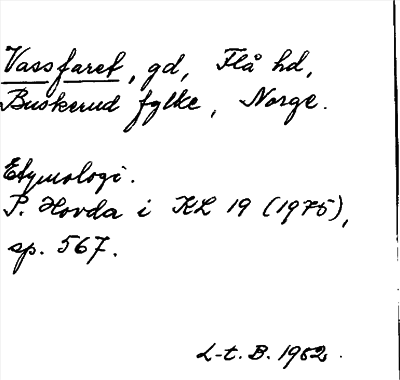 Vassfaret, gd, Flå hd,
Buskerud fylke, Norge.
Etymologi.
P. Hovda i KL 19 (1975),
sp. 567.
L-t. B. 1952.